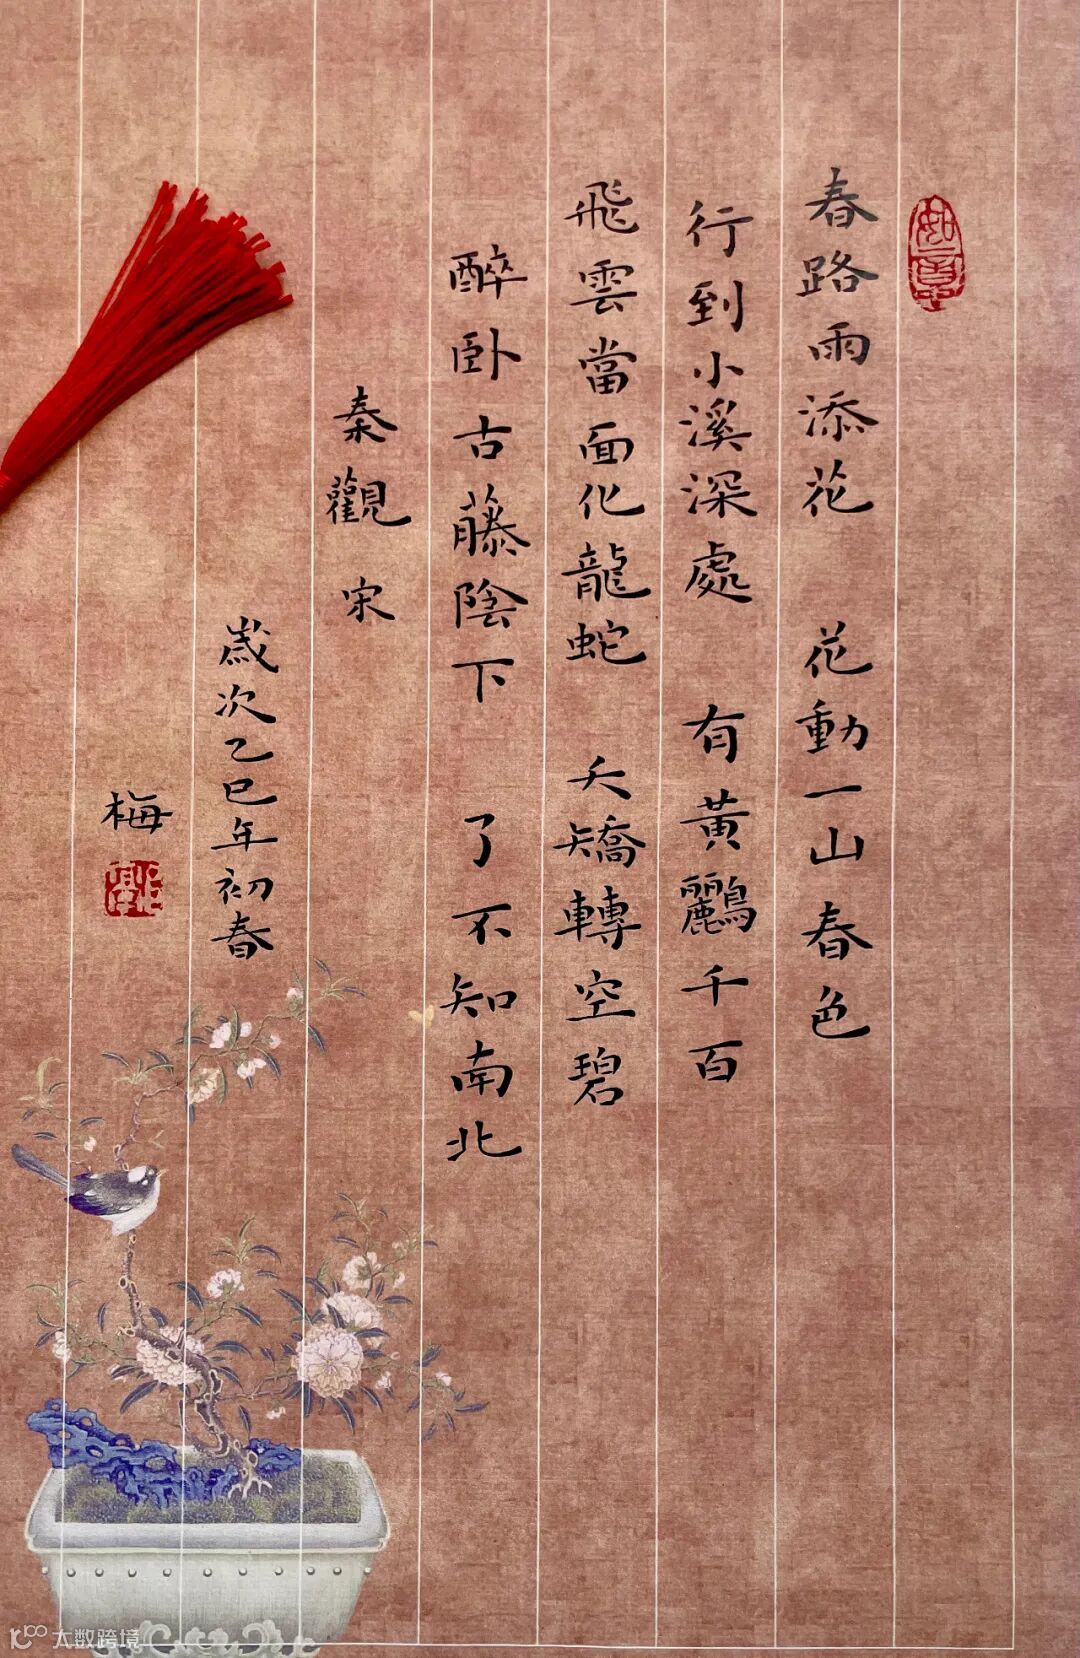 春路雨添花 花動一山春色
行到小溪深處 有黃鸝千百
飛雲當面化龍蛇 夭矯轉空碧
醉卧古藤陰下 了不知南北
秦觀 宋
歲次乙巳年初春
梅
大数跨境